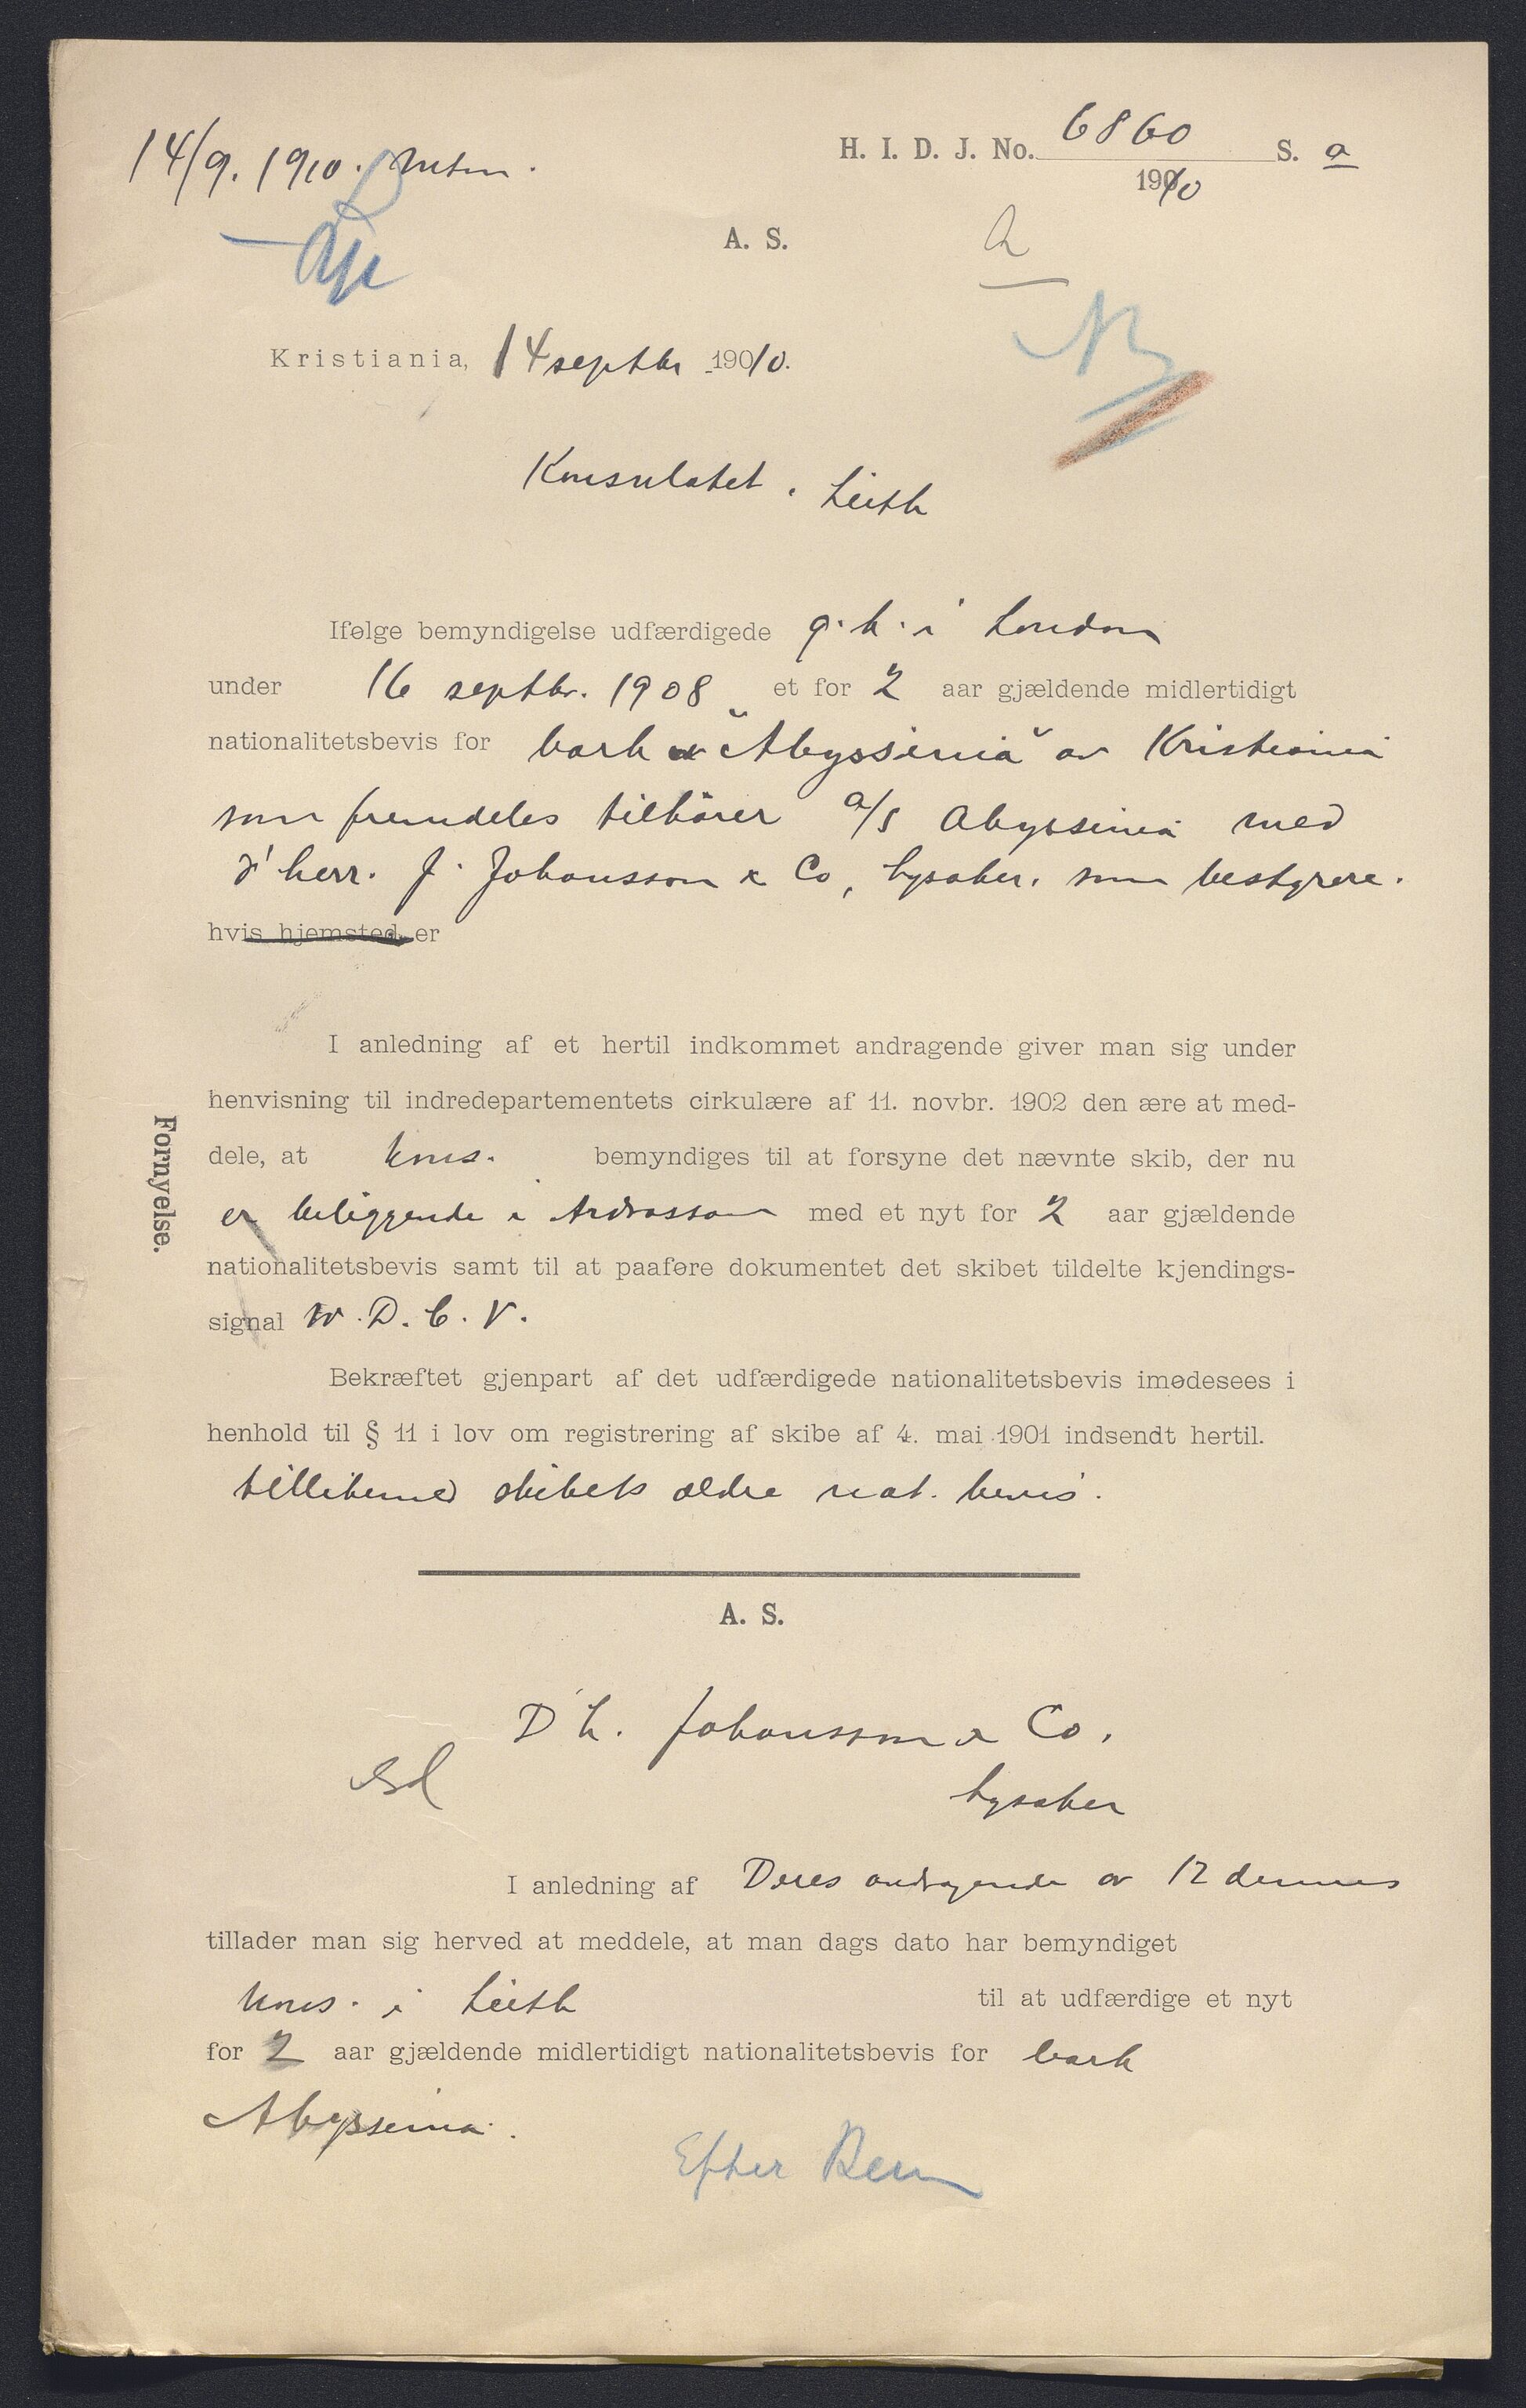 14/9. 1910.
H. I. D. J. No. 6860 S. a
1910
A. S.
Kristiania, 14 septbr 1910.
Konsulatet i Leith
Ifølge bemyndigelse udfærdigede g. k. i London
under 16 septbr. 1908 et for 2 aar gjældende midlertidigt
nationalitetsbevis for bark "Abyssinia" av Kristiania
som fremdeles tilhører A/S Abyssinia med
d'herr. J. Johansson & Co, Lysaker, som bestyrere.
hvis hjemsted er
I anledning af et hertil indkommet andragende giver man sig under
henvisning til indredepartementets cirkulære af 11. novbr. 1902 den ære at med-
dele, at kons. bemyndiges til at forsyne det nævnte skib, der nu
er beliggende i Ardrossan med et nyt for 2 aar gjældende
nationalitetsbevis samt til at paaføre dokumentet det skibet tildelte kjendings-
signal W. D. C. V.
Bekræftet gjenpart af det udfærdigede nationalitetsbevis imødesees i
henhold til § 11 i lov om registrering af skibe af 4. mai 1901 indsendt hertil.
tillikemed skibets ældre nat. bevis.
Fornyelse.
A. S.
D'h. Johansson & Co.
Lysaker
I anledning af Deres andragende av 12 dennes
tillader man sig herved at meddele, at man dags dato har bemyndiget
kons. i Leith til at udfærdige et nyt
for 2 aar gjældende midlertidigt nationalitetsbevis for bark
Abyssinia.
Efter Bem